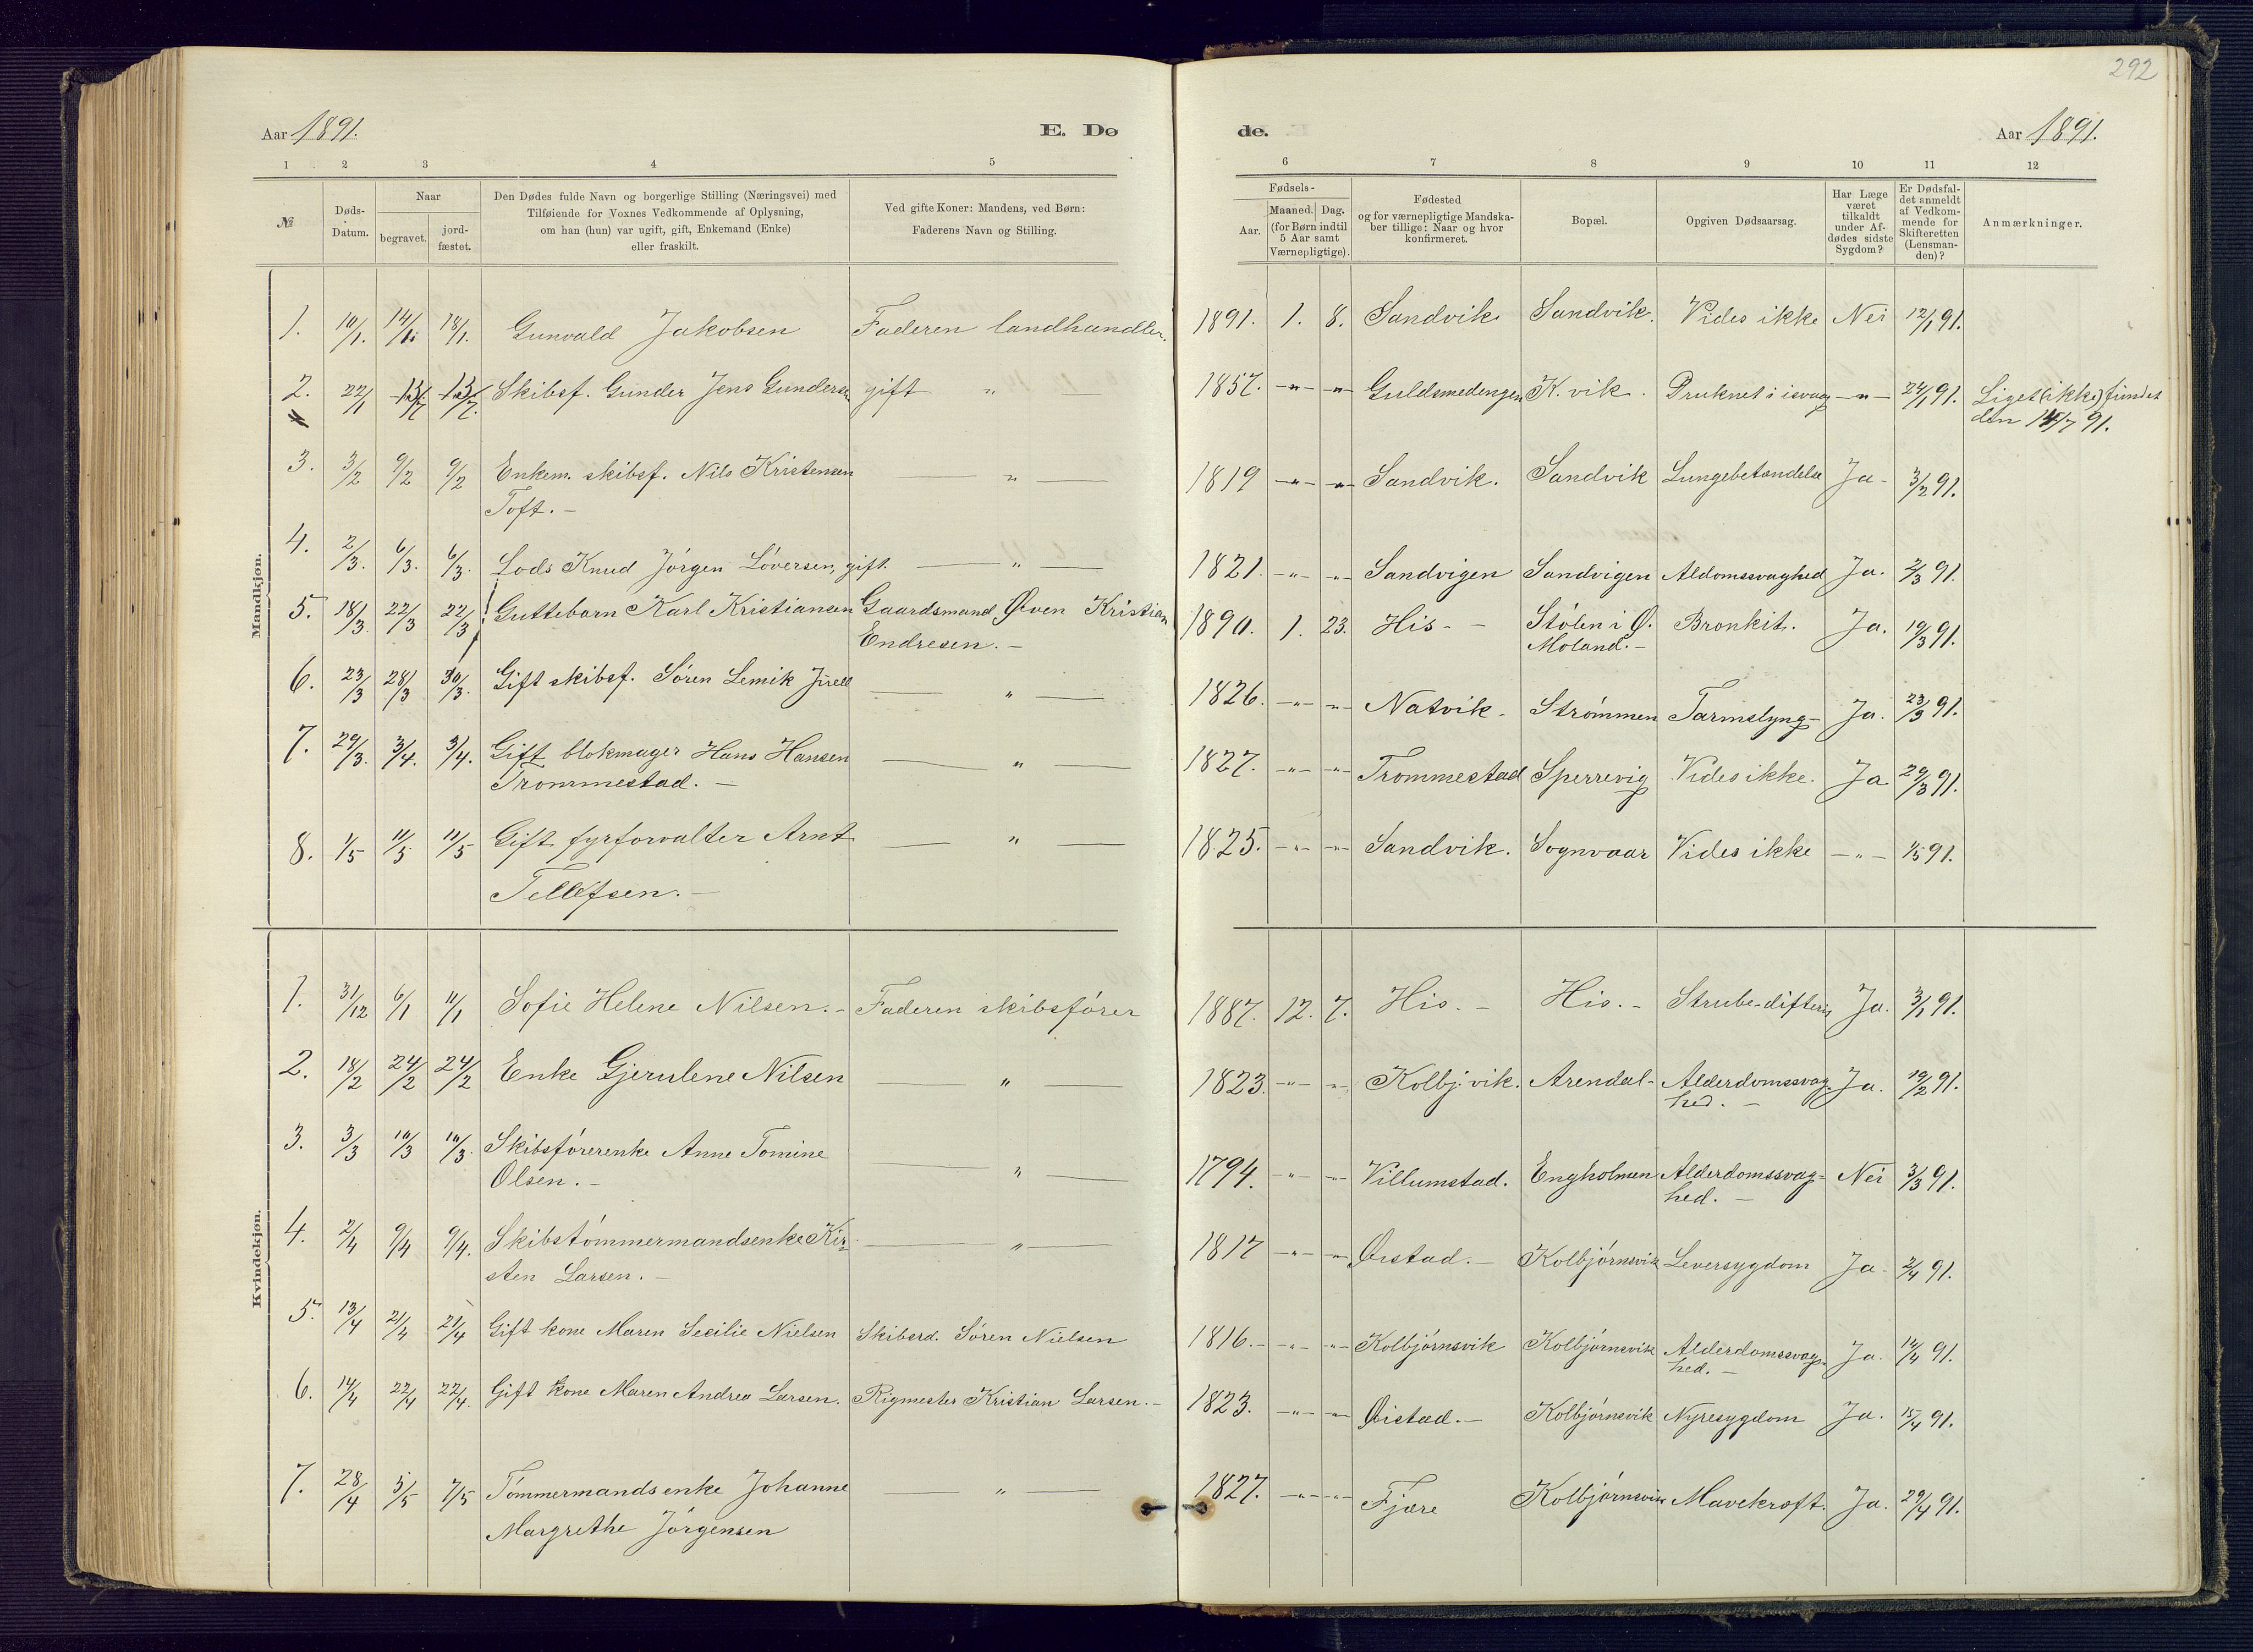 292
Aar 1891. E. Dø de. Aar 1891.
1 2 3 4 5 6 7 8 9 10 11 12
№
Døds-Datum.
Naar
begravet.
jord-fæstet.
Den Dødes fulde Navn og borgerlige Stilling (Næringsvei) med
Tilføiende for Voxnes Vedkommende af Oplysning,
om han (hun) var ugift, gift, Enkemand (Enke)
eller fraskilt.
Ved gifte Koner: Mandens, ved Børn:
Faderens Navn og Stilling.
Fødsels-
Aar.
Maaned. Dag.
(for Børn indtil
5 Aar samt
Værnepligtige).
Fødested
og for værnepligtige Mandska-
ber tillige: Naar og hvor
konfirmeret.
Bopæl.
Opgiven Dødsaarsag.
Har Læge
været
tilkaldt
under Af-
dødes sidste
Sygdom?
Er Dødsfal-
det anmeldt
af Vedkom-
mende for
Skifteretten
(Lensman-
den)?
Anmærkninger.
Mandkjøn.
1. 10/1. 14/1. 18/1. Gunvald Jakobsen Faderen landhandler. 1891. 1. 8. Sandvik Sandvik. Vides ikke Nei 12/1 91.
2. 22/1 13/7 13/7. Skibsf. Gunder Jens Gundersen gift " — 1857. -"- -"- Guldsmedengen K.vik. Druknet i isvaag -"- 24/1 91. Liget (ikke) fundet
den 11/7 91.
3. 3/2 9/2 9/2 Enkem. skibsf. Nils Kristensen — " — 1819 -"- -"- Sandvik. Sandvik Lungebetændelse Ja - 3/2 91.
Toft. -
4. 2/3. 6/3. 6/3. Lods Knud Jörgen Löversen, gift. — " — 1821. -"- -"- Sandvigen Sandvigen Aldomssvaghed Ja. 2/3 91.
5. 18/3. 22/3 22/3 Guttebarn Karl Kristiansen Gaardsmand Öven Kristian 1890. 1. 23. His - - Stölen i Ø. Bronkit. Ja. 19/3 91.
Endresen. - Moland. -
6. 23/3 28/3 30/3. Gift skibsf. Sören Lemik Jurell — " — 1826. -"- -"- Natvik - Strömmen Tarmslyng- Ja. 23/3 91.
7. 29/3. 3/4. 3/4. Gift blokmager Hans Hansen — " — 1827. -"- -"- Trommestad Sperrevig Vides ikke. Ja 29/3 91.
Trommestad. -
8. 1/5 11/5 11/5 Gift fyrforvalter Arnt — " — 1825. -"- -"- Sandvik. Sognvaar Vides ikke -"- 1/5 91.
Tellefsen. -
Kvindekjøn.
1. 31/12 6/1 11/1 Sofie Helene Nilsen. - Faderen skibsförer 1887. 12. 7. His. - His. - Strube-difteri Ja. 3/1 91.
2. 18/2 24/2 24/2 Enke Gjerulene Nilsen — " — 1823. -"- -"- Kolbj.vik. Arendal - Alderdomssvag- Ja. 19/2 91.
hed. -
3. 3/3 10/3 10/3. Skibsförerenke Anne Tomine — " — 1794. -"- -"- Villumstad. Engholmen Alderdomssvag- Nei 3/3 91.
Olsen. - hed. -
4. 2/4 9/4 9/4. Skibstömmermandsenke Kir- — " — 1817 -"- -"- Öistad. - Kolbjörnsvik Leversygdom Ja - 2/4 91.
sten Larsen. -
5. 13/4 21/4 21/4 Gift kone Maren Secilie Nielsen Skibsrd. Sören Nielsen 1816. - -"- -"- Kolbjörnsvik Kolbjörnsvik Alderdomssvag- Ja. 14/4 91.
hed. -
6. 14/4 22/4 22/4. Gift kone Maren Andrea Larsen. Rigmester Kristian Larsen. - 1823. -"- -"- Öistad. - Kolbjörnsvik Nyresygdom Ja. 15/4 91.
7. 28/4 5/5 7/5 Tömmermandsenke Johanne — " — 1827. -"- -"- Fjære Kolbjörnsvik Mavekræft. Ja. 29/4 91.
Margrethe Jörgensen